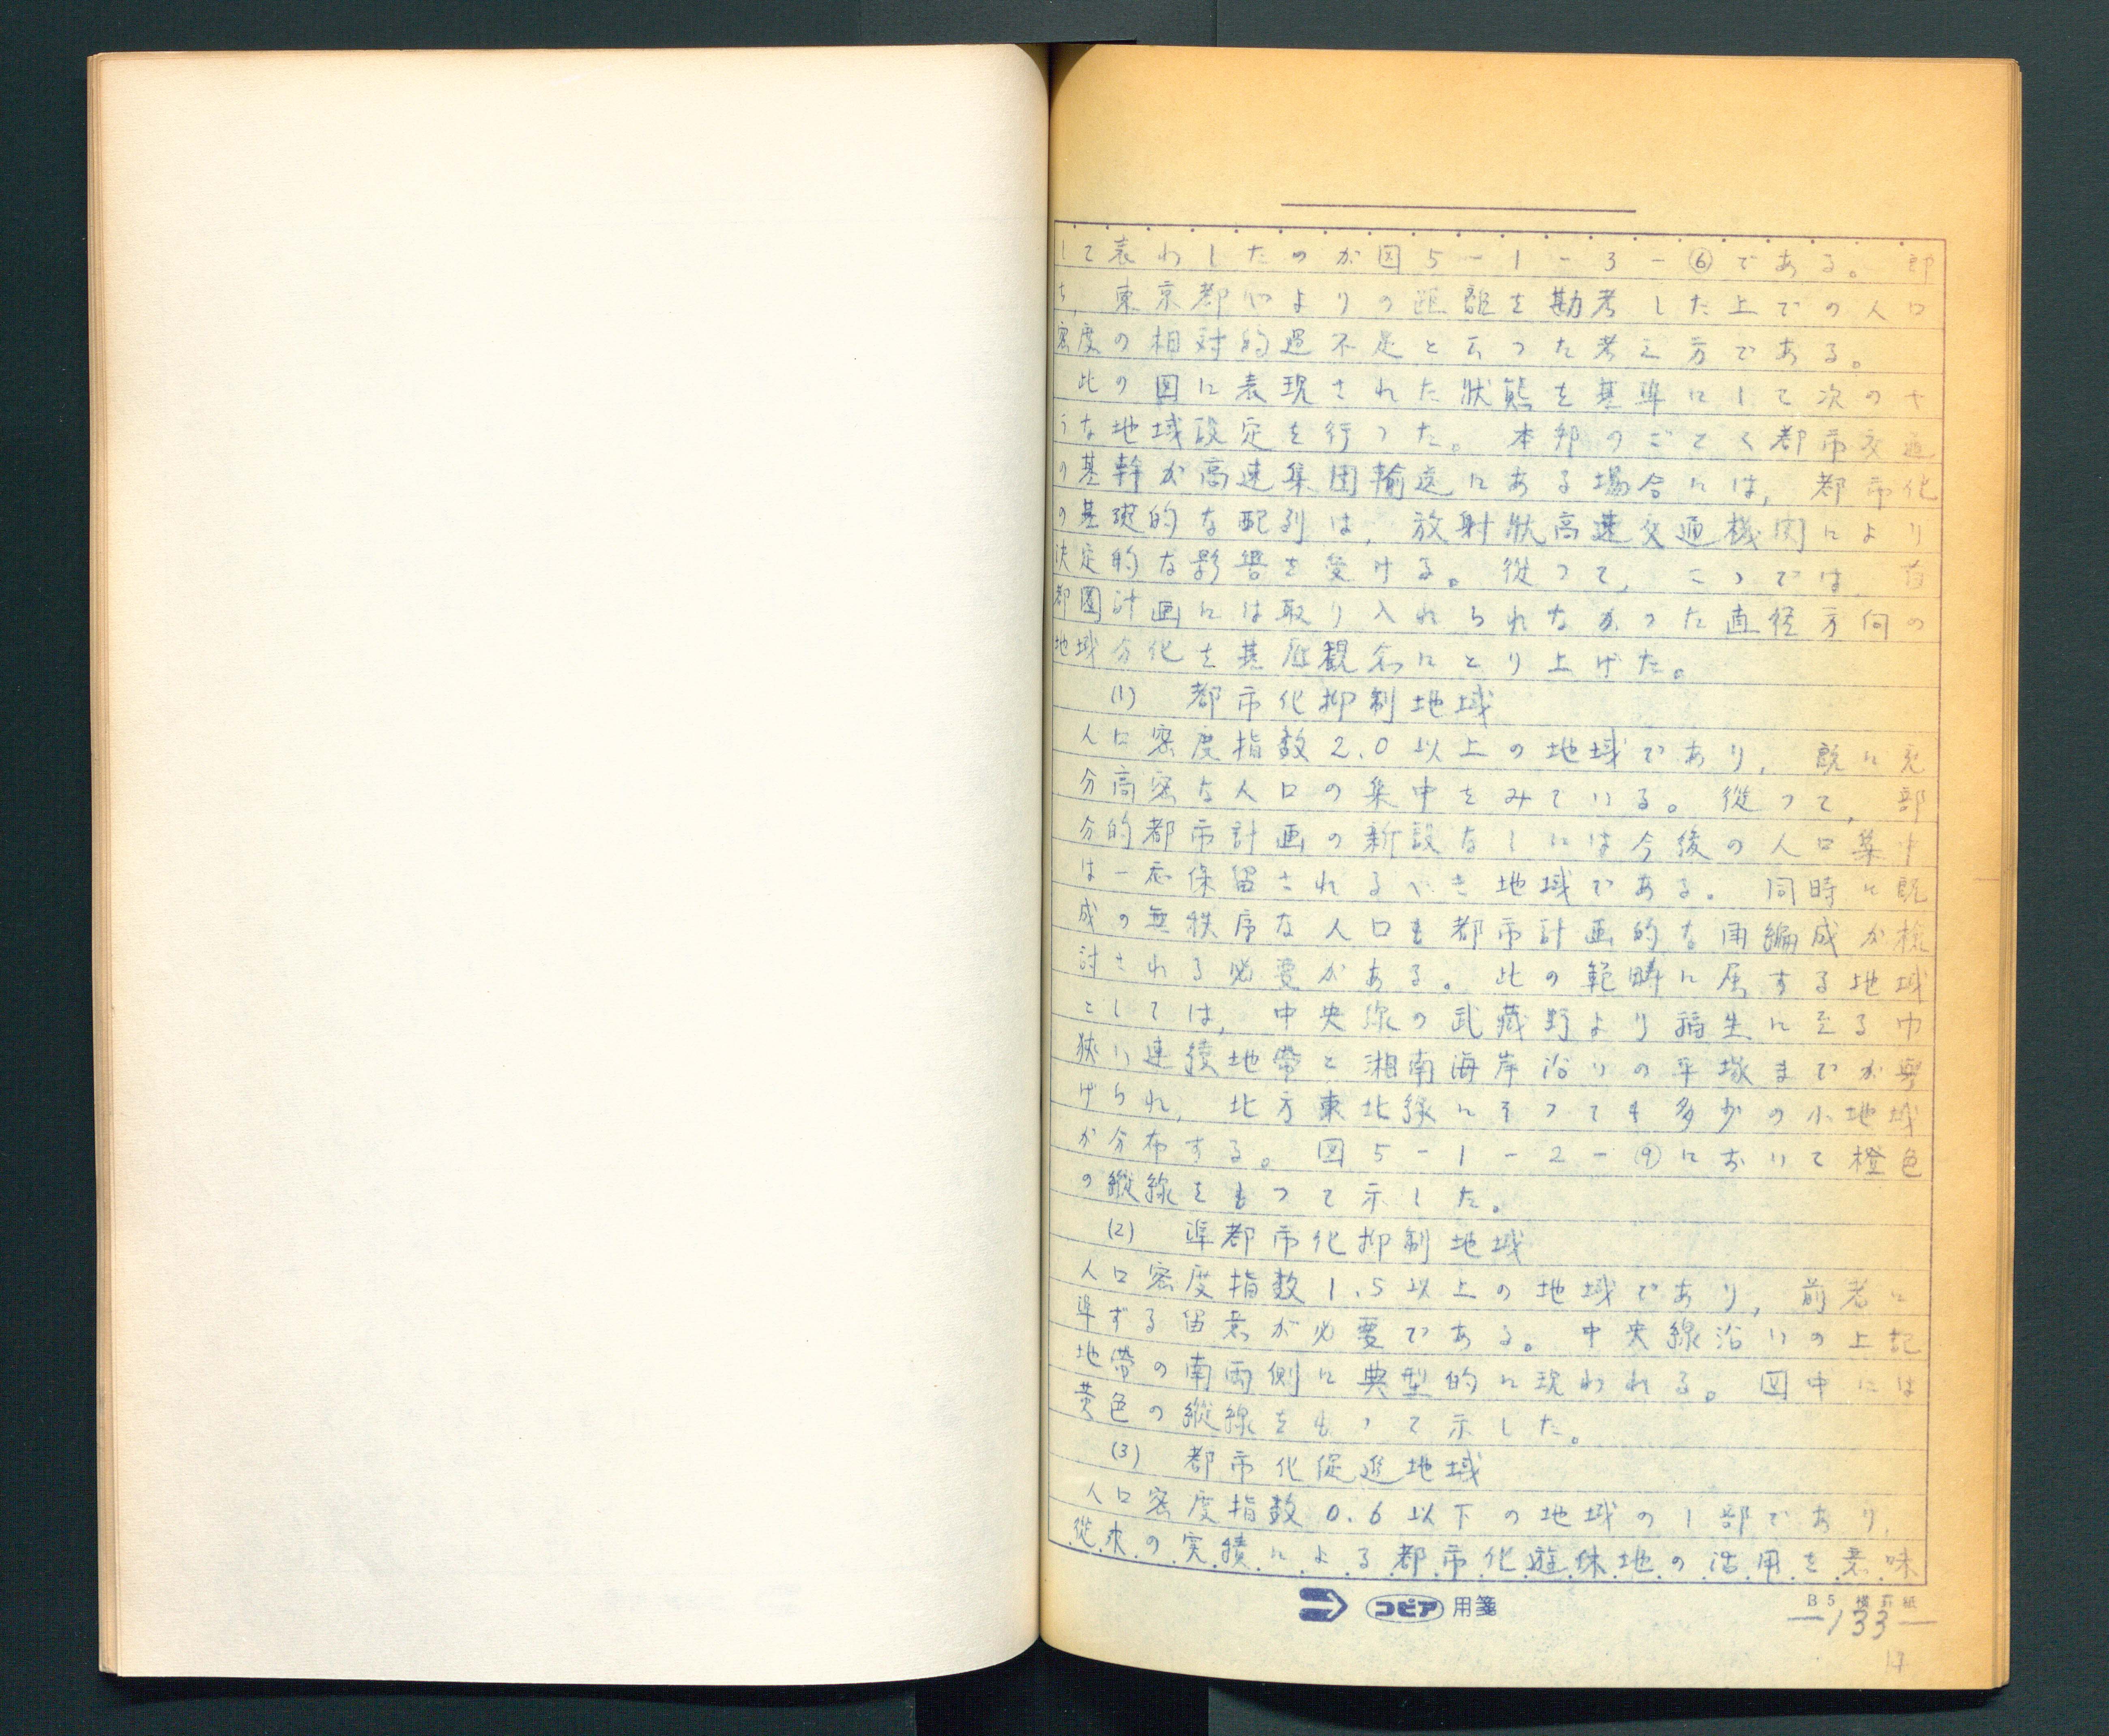 して表わしたのが図5-1-3-⑥である。即
ち,東京都心よりの距離を勘考した上での人口
密度の相対的過不足と云つた考え方である。
此の図に表現された狀態を基準にして次のよ
うな地域設定を行つた。本邦のごとく都市交通
の基幹が高速集団輸送にある場合には,都市化
の基礎的な配列は,放射狀高速交通機関により
決定的な影響を受ける。従つて,こゝでは首
都圏計画には取り入れられなかつた直径方向の
地域分化を基底観念にとり上げた。
(1) 都市化抑制地域
人口密度指数2.0以上の地域であり,既に充
分高密な人口の集中をみている。従つて,部
分的都市計画の新設なしには今後の人口集中
は一応保留されるべき地域である。同時に既
成の無秩序な人口も都市計画的な再編成が検
討される必要がある。此の範疇に属する地域
としては,中央線の武蔵野より福生に至る巾
狹い連続地帶と湘南海岸沿いの平塚までが挙
げられ,北方東北線にそつても多少の小地域
が分布する。図5-1-2-⑨において橙色
の縦線をもつて示した。
(2) 準都市化抑制地域
人口密度指数1.5以上の地域であり,前者に
準ずる留意が必要である。中央線沿いの上記
地帶の南両側に典型的に現われる。図中には
黄色の縦線をもつて示した。
(3) 都市化促進地域
人口密度指数0.6以下の地域の1部であり,
従来の実績による都市化遊休地の活用を意味
コピア用箋
B5 横罫紙
—133—
17